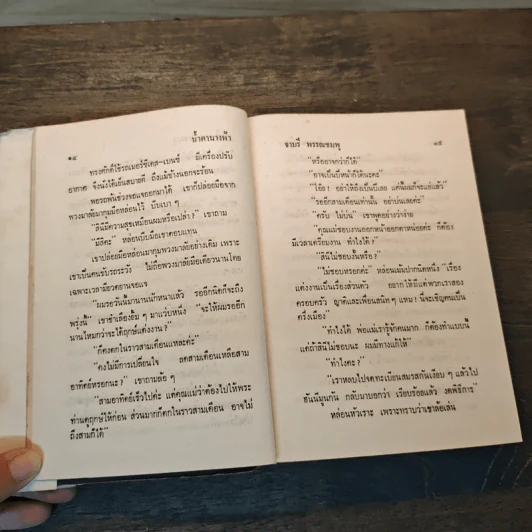 ๑๔
น้ำตานางฟ้า
ทรงศักดิ์ใช้รถเมอร์ซีเดส-เบนซ์ มีเครื่องปรับ
อากาศ จึงนั่งได้เย็นสบายดี ถึงแม้ข้างนอกจะร้อน
พอรถพ้นช่วงจอแจออกมาได้ เขาก็ปล่อยมือจาก
พวงมาลัยมากุมมือหล่อนไว้ บีบเบา ๆ
"ลินีมีความสุขเหมือนผมหรือเปล่า?" เขาถาม
"มีสิคะ" หล่อนบีบมือเขาตอบแทน
เขาปล่อยมือหล่อนมากุมพวงมาลัยอย่างเดิม เพราะ
เขาเป็นคนขับรถระวัง ไม่ถือพวงมาลัยมือเดียวนานโดย
เฉพาะเวลามียวดยานจอแจ
"ผมรอวันนี้มานานนักหนาแล้ว รออีกนิดก็จะถึง
พรุ่งนี้" เขาชำเลืองยิ้ม ๆ มาแวบหนึ่ง "จะให้ผมรออีก
นานไหมกว่าจะได้ฤกษ์แต่งงาน?"
"ก็คงตกในราวสามเดือนแหละค่ะ"
"คงไม่มีการเปลี่ยนใจ ลดสามเดือนเหลือสาม
อาทิตย์หรอกนะ?" เขาถามอ้อย ๆ
"สามอาทิตย์เร็วไปค่ะ แต่คุณแม่ว่าต้องไปให้พระ
ท่านดูฤกษ์ให้ก่อน ส่วนมากก็ตกในราวสามเดือน อาจไม่
ถึงสามก็ได้"
จามรี พรรณชมพู
๑๕
"หรืออาจกว่าก็ได้"
"อาจเป็นปีหน้าก็ได้นะคะ"
"โอ๊ย! อย่าให้ถึงเป็นปีเลย แค่นี้ผมก็จะแย่แล้ว"
"รออีกสามเดือนเท่านั้น อย่าบ่นเลยค่ะ"
"ครับ ไม่บ่น" เขาพูดอย่างว่าง่าย
"คุณแม่ชอบงานออกหน้าออกตาหน่อยค่ะ ก็ต้อง
มีเวลาเตรียมงาน ทำไงได้?"
"ลินีไม่ชอบงั้นหรือ?"
"ไม่ชอบหรอกค่ะ" หล่อนเม้มปากนิดหนึ่ง "เรื่อง
แต่งงานเป็นเรื่องส่วนตัว อยากให้มีแต่พวกเราสอง
ครอบครัว ญาติและเพื่อนสนิท ๆ แหม! นี่จะเชิญคนเป็น
ครึ่งเมือง"
"ทำไงได้ พ่อแม่เรารู้จักคนมาก ก็ต้องทำแบบนี้
แต่ถ้าลินีไม่ชอบนะ ผมมีทางแก้ให้"
"ทำไงคะ?"
"เราหลบไปจดทะเบียนสมรสกันเงียบ ๆ แล้วไป
ฮันนีมูนกัน กลับมาบอกว่า เรียบร้อยแล้ว งดพิธีการ"
หล่อนหัวเราะ เพราะทราบว่าเขาล้อเล่น